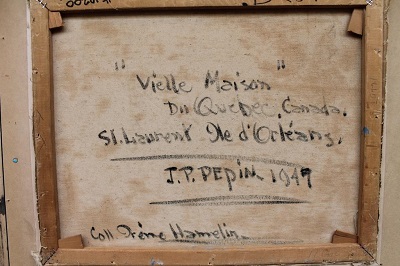 " Vielle Maison "
Du Québec, Canada.
St. Laurent Ile d'Orléans.
J.P. PEPIN 1947
Coll Hamelin